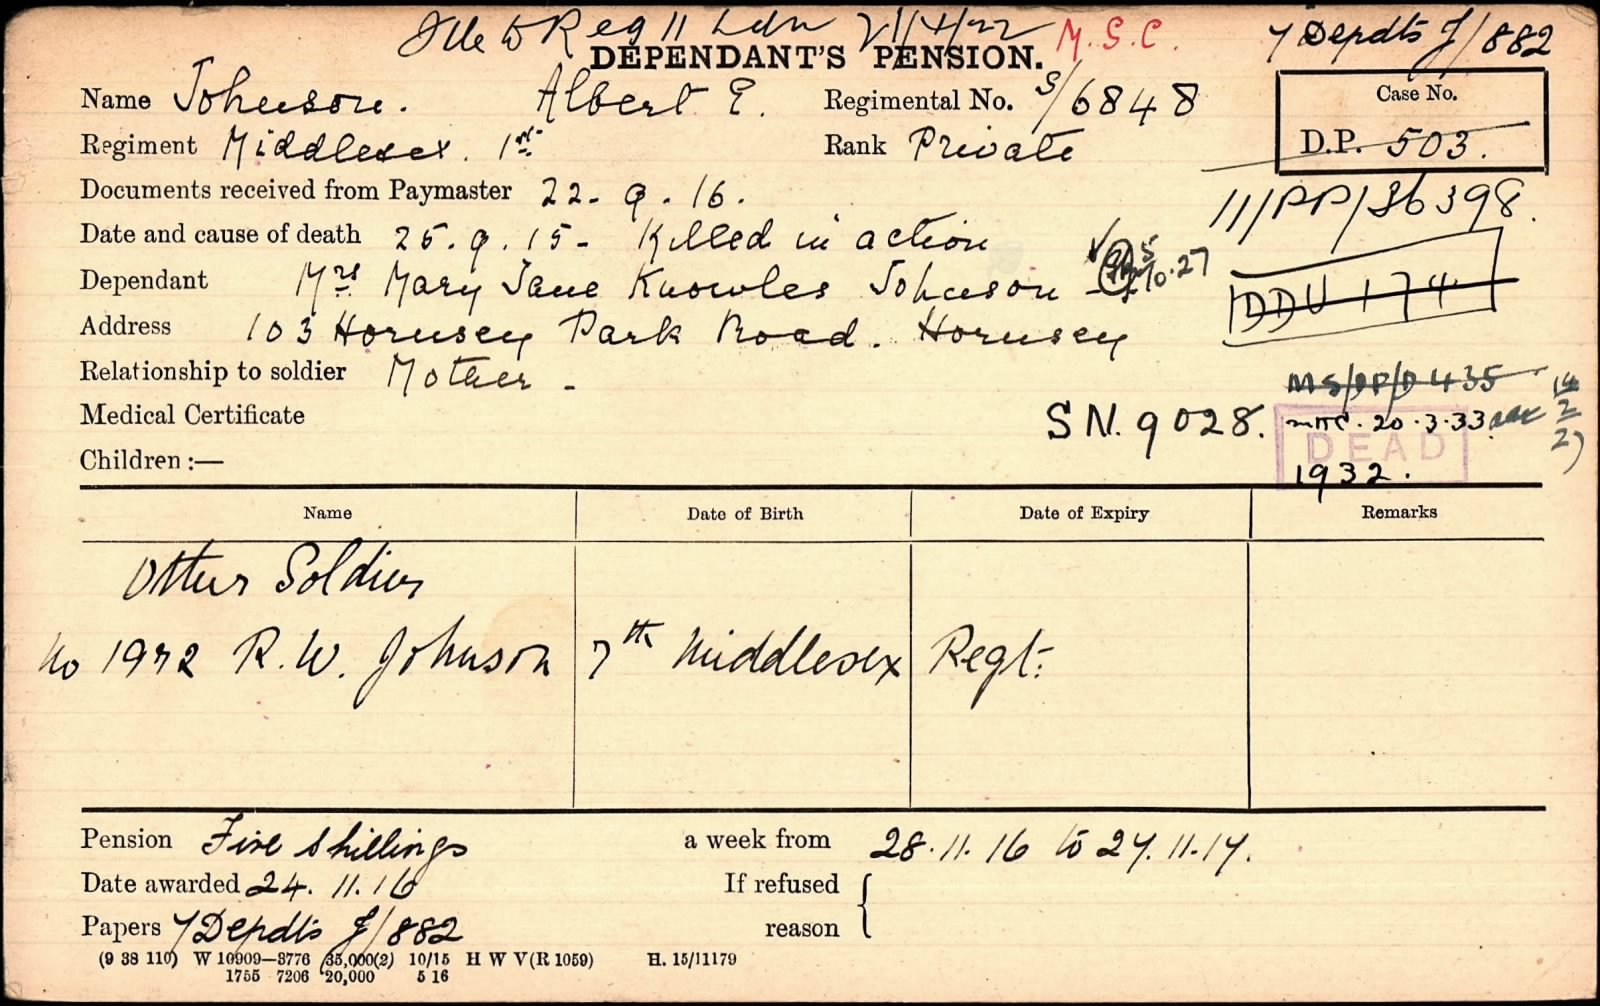 File to Reg 11 Ldn 21/4/22 M.S.C. 7 Depdts J/882
DEPENDANT'S PENSION.
Name Johnson. Albert E. Regimental No. S/6848
Case No.
Regiment Middlesex. 1st Rank Private
D.P. 503.
Documents received from Paymaster 22. 9. 16.
11/PP/36398.
Date and cause of death 25. 9. 15 - Killed in action
Dependant Mrs Mary Jane Knowles Johnson 5.10.27
DDU 174
Address 103 Hornsey Park Road. Hornsey
Relationship to soldier Mother -
MS/DP/D 435
Medical Certificate SN. 9028. 20.3.33
DEAD
Children :—
1932.
Name Date of Birth Date of Expiry Remarks
Other Soldier
No 1972 R.W. Johnson 7th Middlesex Regt:
Pension Five Shillings a week from 28.11.16 to 27.11.17.
Date awarded 24. 11.16 If refused
Papers 7 Depdts J/882 reason
(9 38 110) W 10909—3776 35,000(2) 10/15 H W V(R 1059) H. 15/11179
1755 7206 20,000 5 16